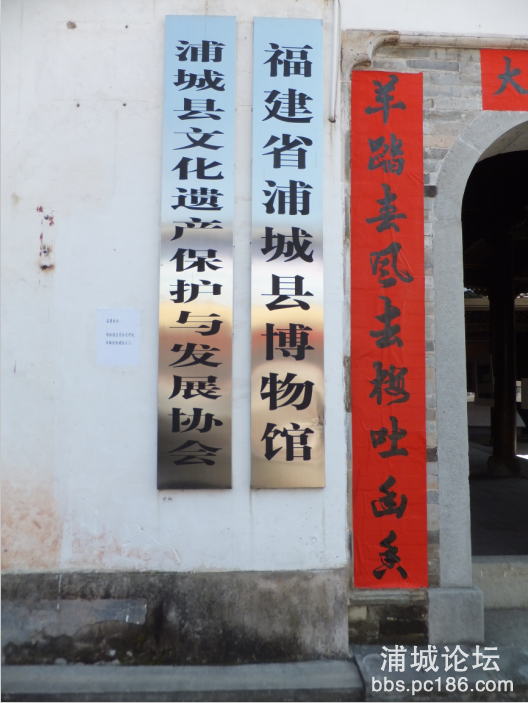 大
羊踏春风去梅吐幽香
福建省浦城县博物馆
浦城县文化遗产保护与发展协会
浦城论坛
bbs.pc186.com